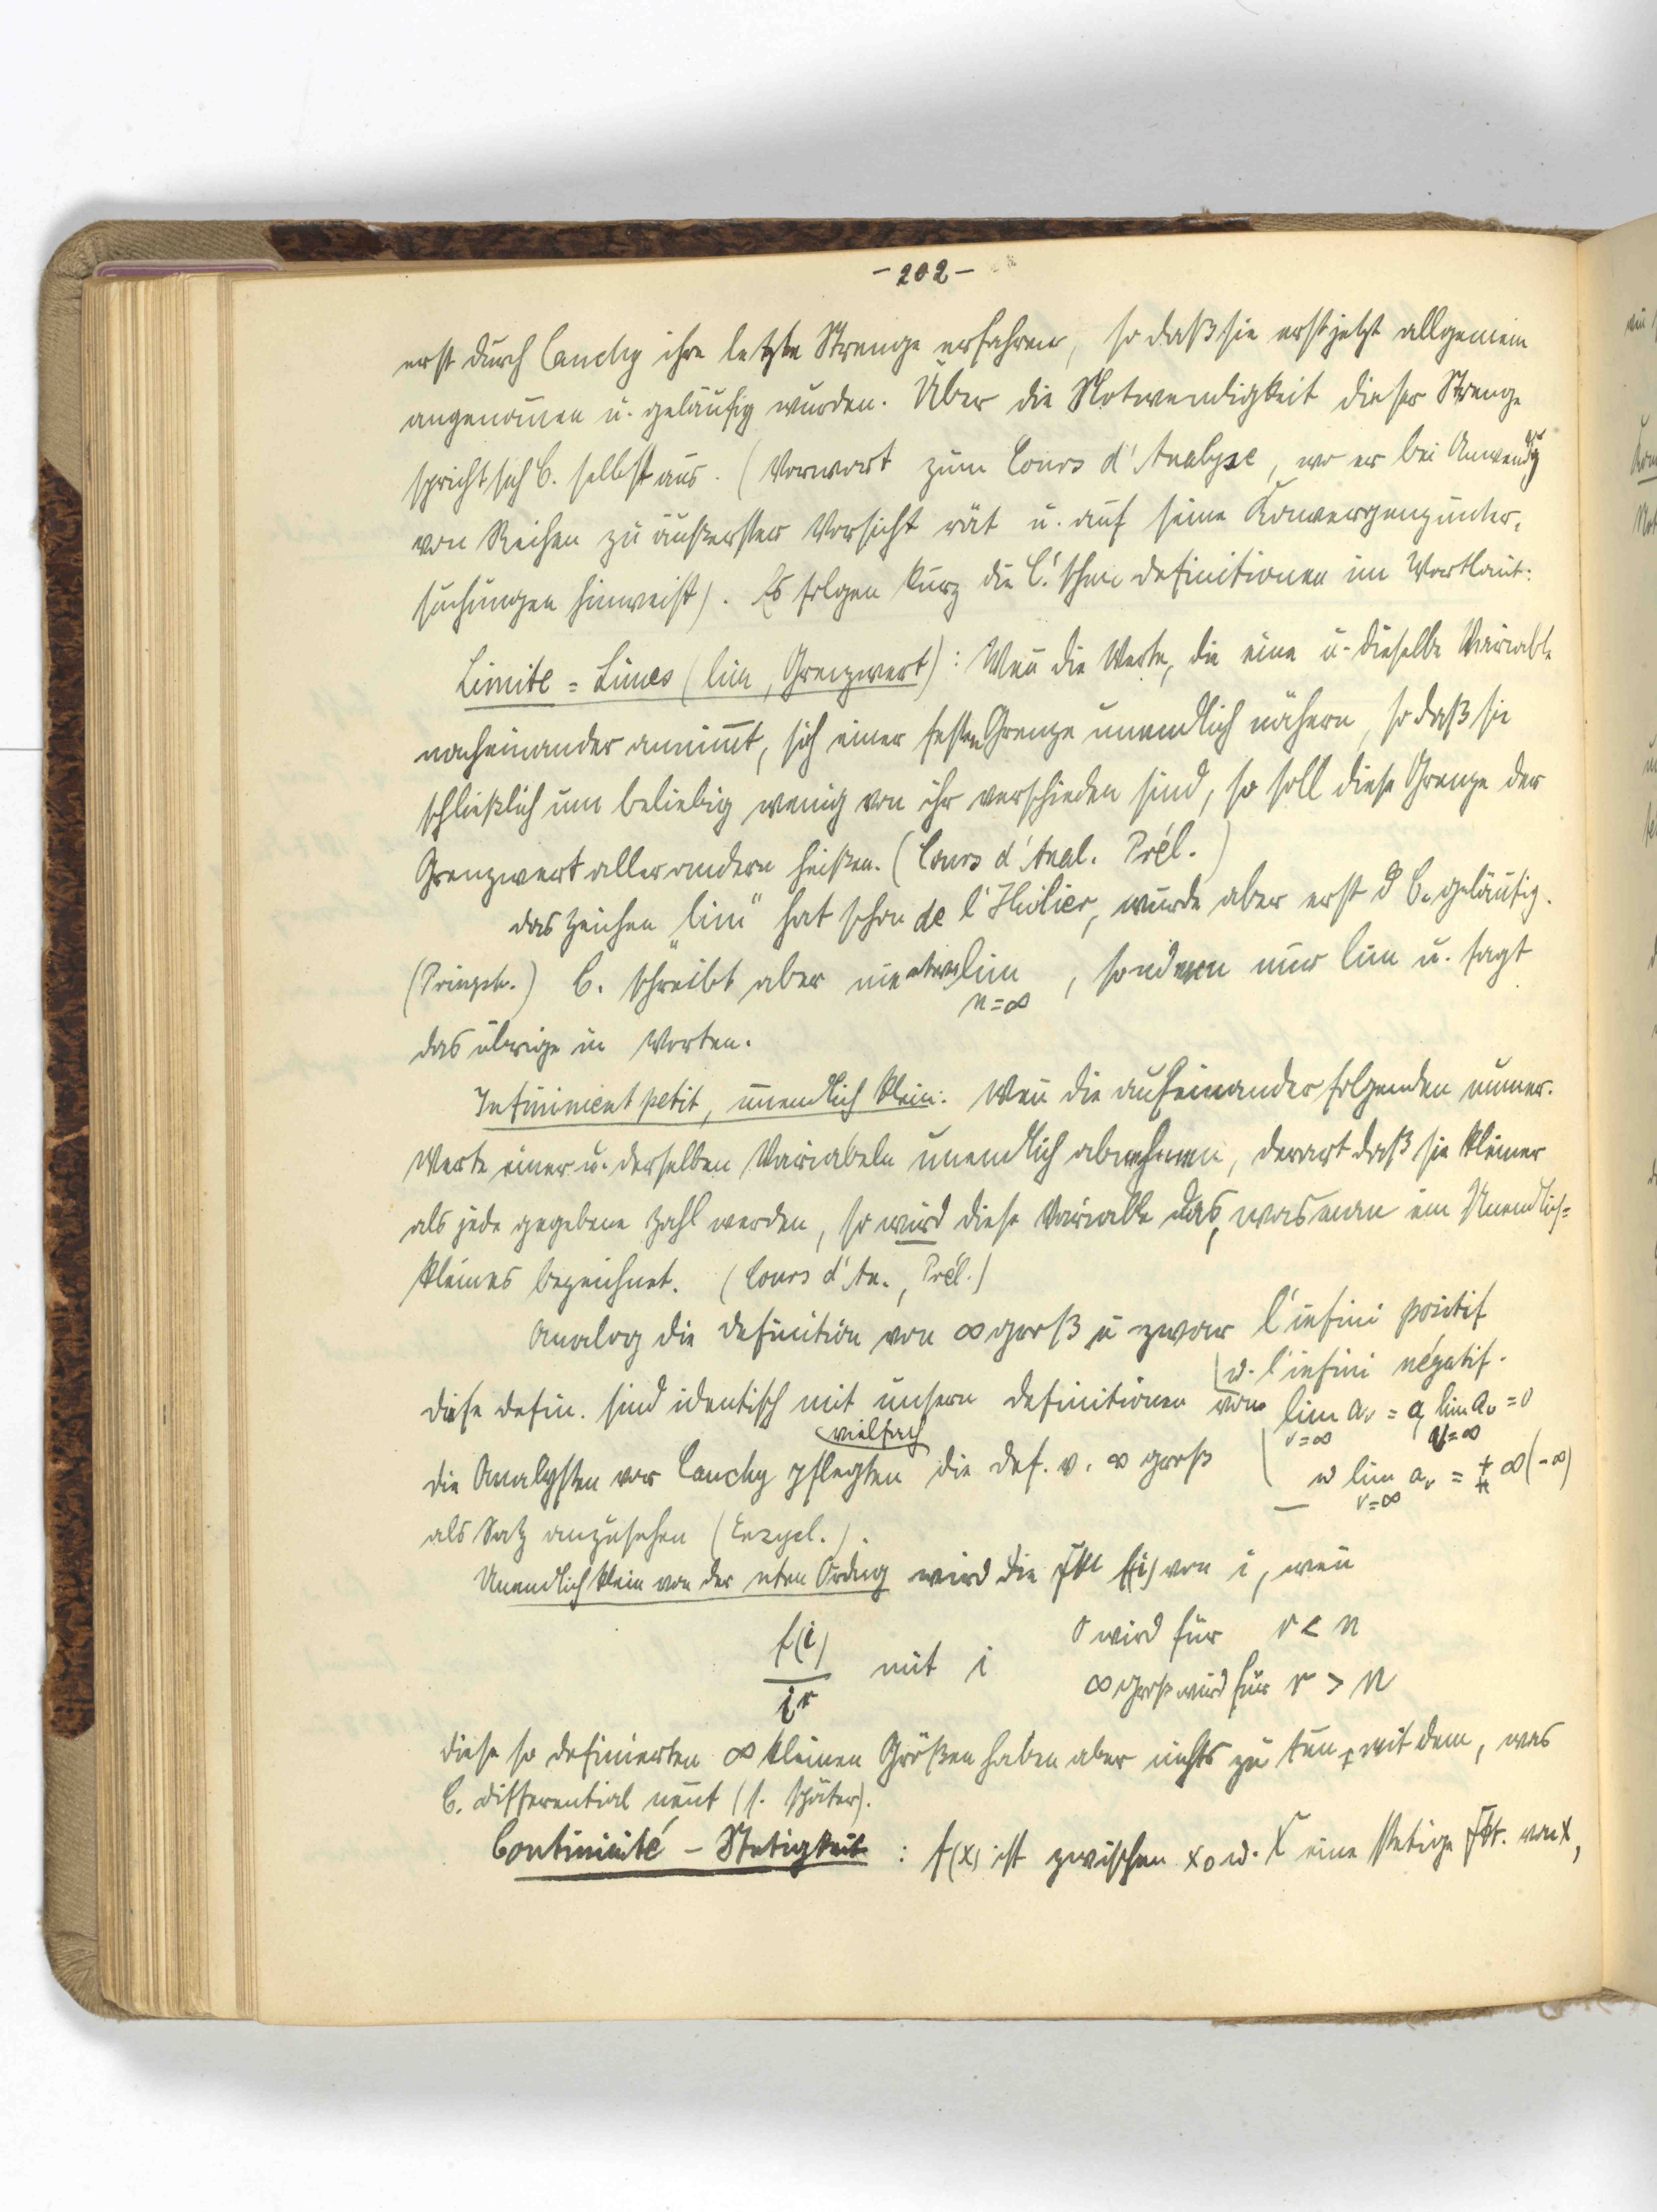 -202-
erst durch Cauchy ihre letzte Strenge erfahren, so daß sie erst jetzt allgemein
angenom̅en u. geläufig wurden. Über die Notwendigkeit dieser Strenge
spricht sich C. selbst aus. (Vorwort zum Cours d'Analyse, wo er bei Anwendg
von Reihen zu äußerster Vorsicht rät u. auf seine Konvergenzunter-
suchungen hinweist). Es folgen kurz die C.'schen Definitionen im Wortlaut:
Limite = Limes (lim, Grenzwert): Wen̅ die Werte, die eine u. dieselbe Variable
nacheinander annim̅t, sich einer festen Grenze unendlich nähern, so daß sie
schließlich um beliebig wenig von ihr verschieden sind, so soll diese Grenze der
Grenzwert aller andern heißen. (Cours d'Anal. Prél.)
Das Zeichen „lim" hat schon de l'Huilier, wurde aber erst d C. geläufig.
(Pringsh.) C. schreibt aber nie etwa lim , sondern nur lim u. sagt
n=∞
das übrige in Worten.
Infiniment petit, unendlich klein: Wen̅ die aufeinander folgenden numer.
Werte einer u. derselben Variabeln unendlich abnehmen, derart daß sie kleiner
als jede gegebene Zahl werden, so wird diese Variable das, was man ein Unendlich=
kleines bezeichnet. (Cours d'An., Prél.)
Analog die Definition von ∞ groß u zwar l'infini positif
u. l'infini négatif.
Diese Defin. sind identisch mit unsern Definitionen von lim aᵥ = a, lim aᵥ = 0
ν=∞ ν=∞
vielfach
Die Analysten vor Cauchy pflegten die Def. v. ∞ groß u lim aᵥ = + ∞ (-∞)
ν=∞
als Satz anzusehen ().
Unendlich klein von der nten Ordng wird die Fkt f(i) von i, wen̅
f(i)/iʳ mit i 0 wird für r < n
∞ groß wird für r > n
Diese so definierten ∞ kleinen Größen haben aber nichts zu tun mit dem, was
C. Differential nen̅t (s. später).
Continuité - Stetigkeit : f(x) ist zwischen x₀ u. X eine stetige Fkt. von x,